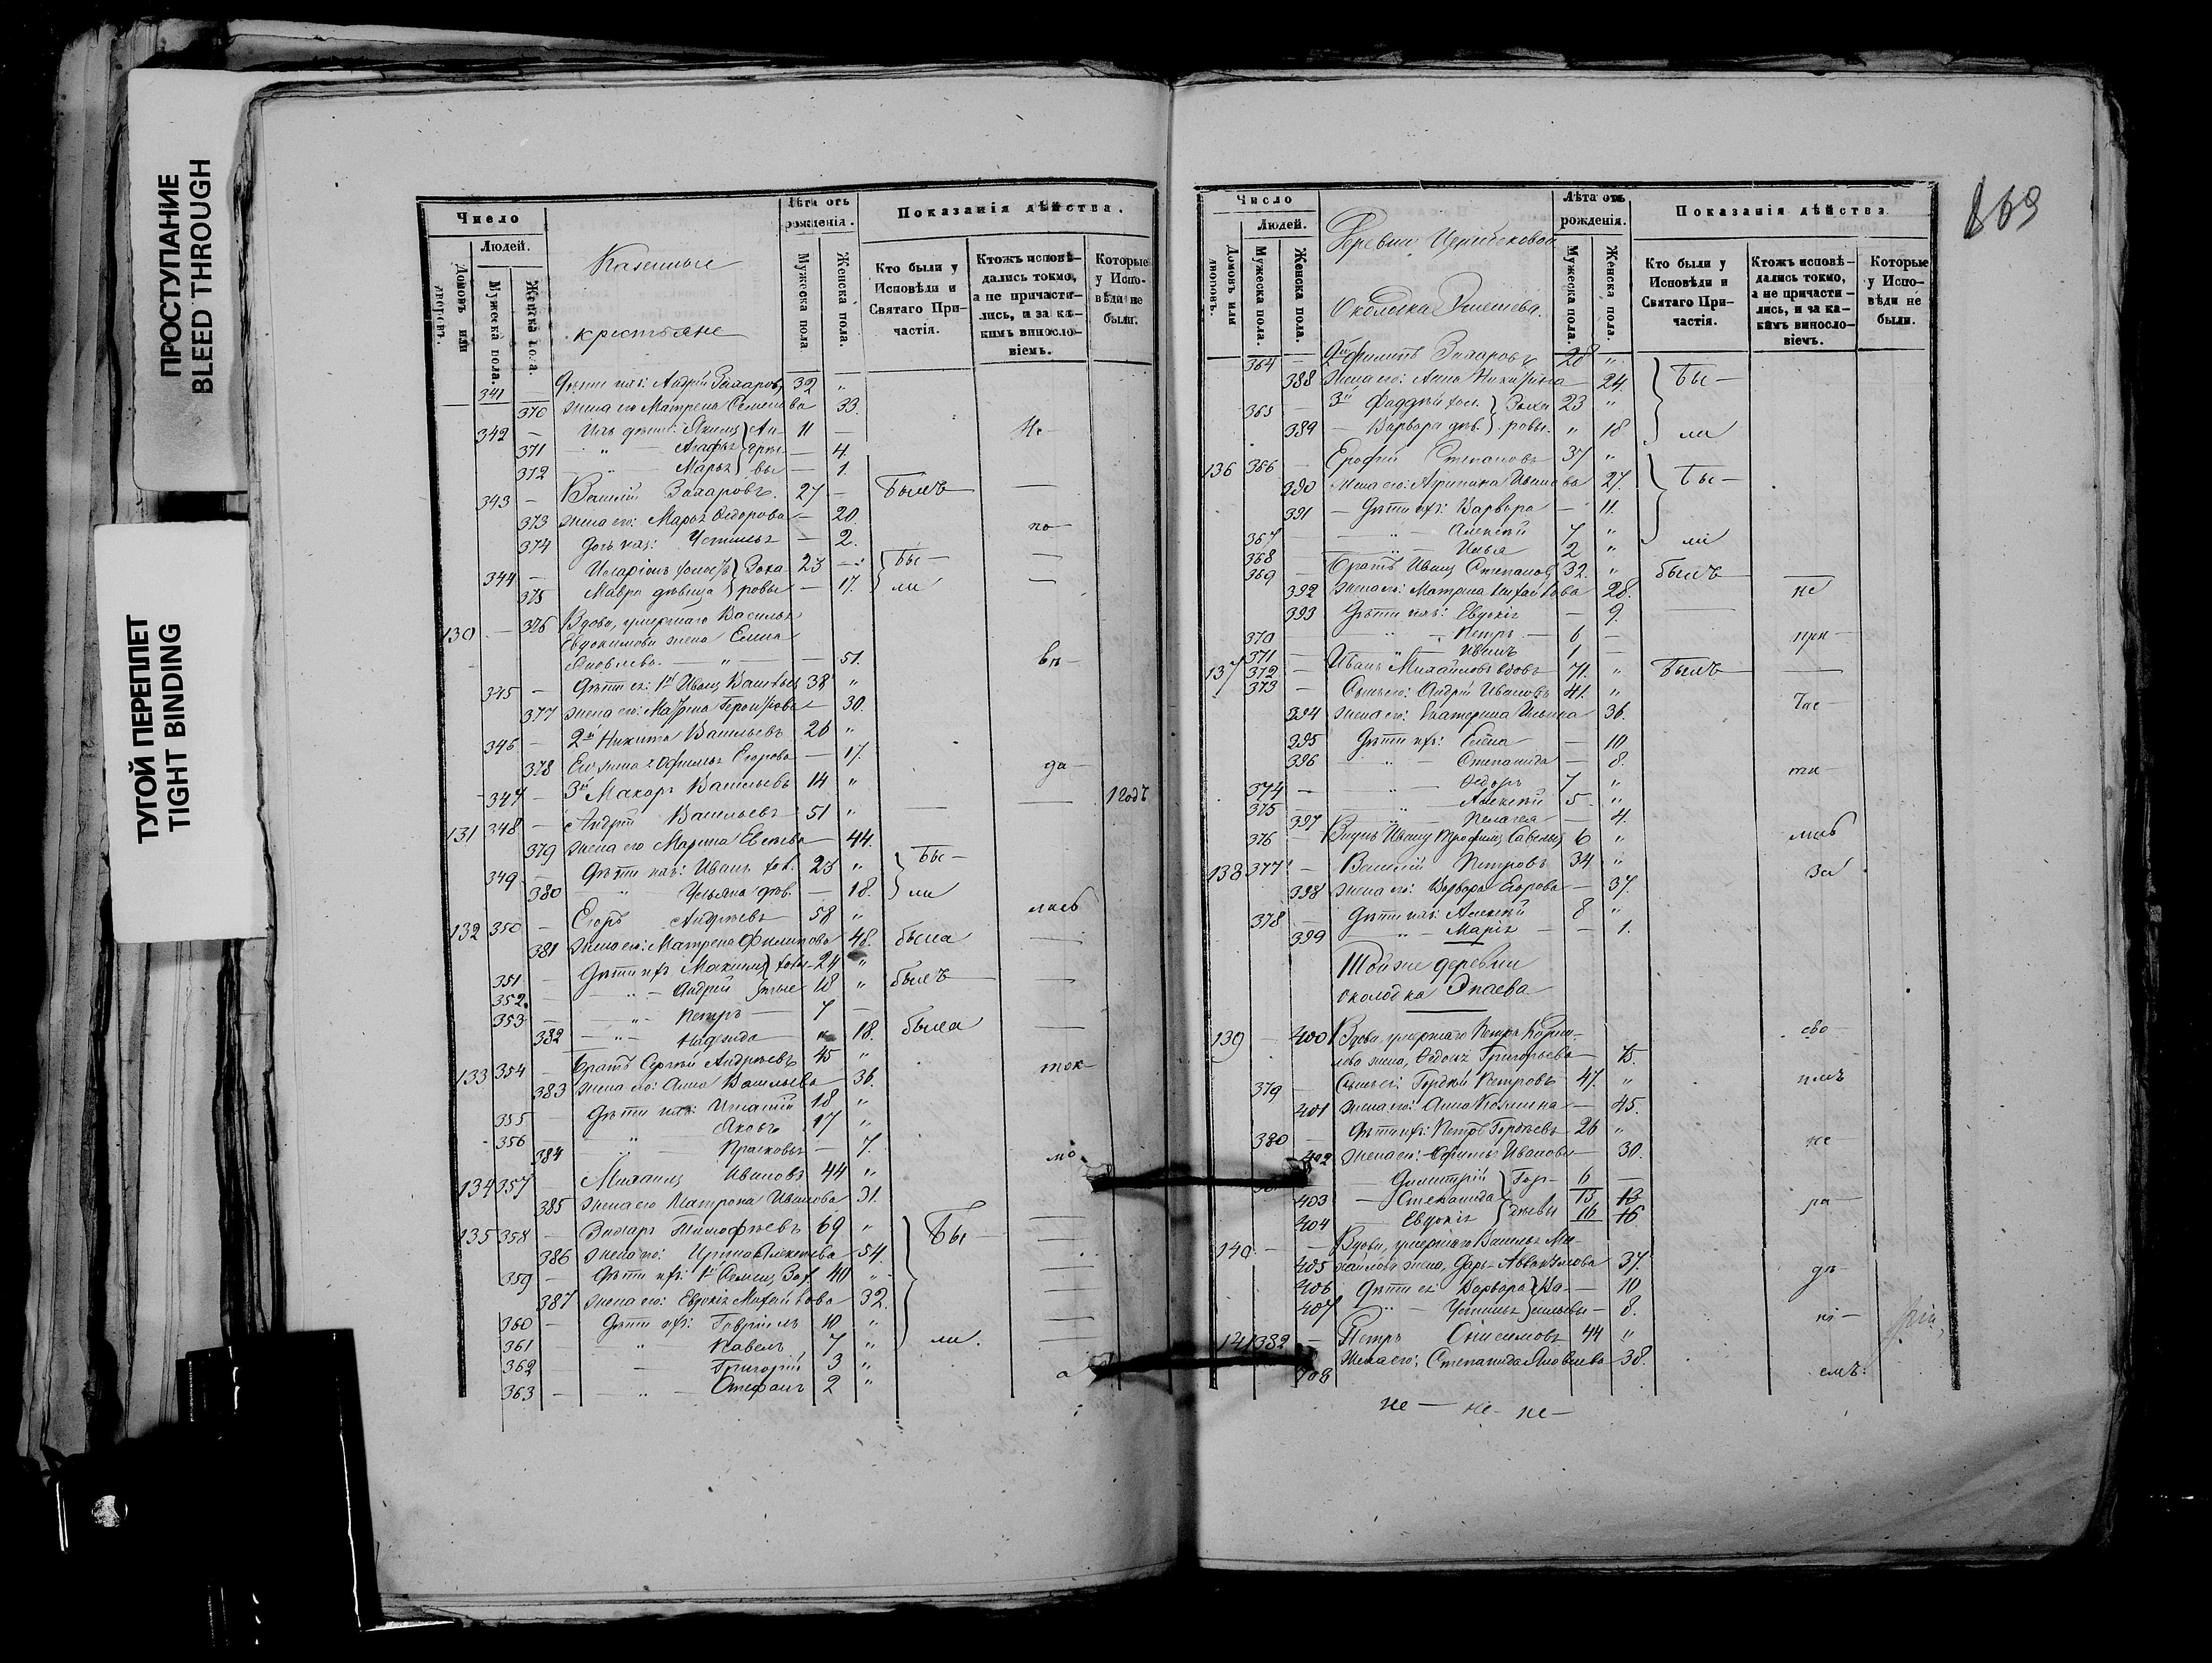 ПРОСТУПАНИЕ
BLEED THROUGH
ТУГОЙ ПЕРЕПЛЕТ
TIGHT BINDING
Число
Людей.
Домовъ или дворовъ.
Мужеска пола.
Женска пола.
Казенные
крестьяне
Лѣта отъ рожденія.
Мужеска пола
Женска пола.
Показанія дѣйства.
Кто были у Исповѣди и Святаго Причастія.
Ктожъ исповѣдались токмо, а не причастились, и за какимъ винословіемъ.
Которые у Исповѣди не были.
341 Дѣти ихъ: Андрей Захаровъ 32 "
370 жена его Матрена Семенова 33.
342 — Ихъ дѣти: Якимъ } Ан- 11 — Не-
371 " Агафья } дрее- — 4.
372 " Марья } вы — 1.
343 — Василій Захаровъ. 27 — Былъ —
373 жена его: Марья Ѳедорова — 20.
374 дочь ихъ: Устинья — 2. по-
344 — Иларіонъ холостъ } Заха- 23 — Бы- —
375 Мавра дѣвица } ровы — 17. ли —
130 — 376 Вдова, умершаго Василья
Евдокимова жена Елена
Яковлева — " — — 51. вѣ-
345 — Дѣти ея: 1й Иванъ Васильевъ 38 "
377 жена его: Марина — 30.
346 — 2й Никита Васильевъ 26 "
378 Его жена Офимья Егорова — 17.
347 — 3й Макаръ Васильевъ 14 " да-
131 348 — Андрей Васильевъ 51 " — — 1 годъ
379 жена его Марина — 44.
349 — Дѣти ихъ: Иванъ хол. 23 " Бы-
380 " Ульяна дѣв. — 18. ли
132 350 — Егоръ Андреевъ 58 " лись
381 жена его: Матрена Филипова 48. была —
351 — Дѣти ихъ Максимъ } 24 "
352. — " — Андрей } 18 " былъ —
353 — " — Петръ — 7 —
382 — " — Надежда " 18. была —
133 354 — Братъ Сергѣй Андреевъ 45 "
383 жена его: Анна Васильева 36. ток-
355 — Дѣти ихъ: Игнатій 18 "
356 " Яковъ 17 "
384 " Прасковья — 7.
134 357 Михаилъ Ивановъ 44 " мо
385 жена его Матрона Иванова 31.
135 358 — Захаръ Тимофѣевъ 69 " Бы- —
386 жена его: Ирина Алексѣева 54.
359 — Дѣти ихъ: 1й Семенъ Зах. 40 " —
387 жена его: Евдокія Михайлова 32. —
360 — Дѣти ихъ: Гавріилъ 10 " —
361 " Павелъ 7 " ли. —
362 — Григорій 3 "
363 — " — Стефанъ 2 " а
869
Число
Людей.
Домовъ или дворовъ.
Мужеска пола.
Женска пола.
Деревни:
Околодка
Лѣта отъ рожденія.
Мужеска пола.
Женска пола.
Показанія дѣйства
Кто были у Исповѣди и Святаго Причастія.
Ктожъ исповѣдались токмо, а не причастились, и за какимъ винословіемъ.
Которые у Исповѣди не были.
364 — 2й Филипъ Захаровъ 28 "
388 жена его: Анна Никитина — 24. Бы-
365 — 3й Фаддѣй хол. } Заха- 23 "
389 — Варвара дѣв. } ровы. " 18 ли
136 366 — Ерофей Степановъ 37 "
390 жена его: Ирина Иванова 27. Бы-
391 — Дѣти ихъ: Варвара — 11.
367 — " — Алексѣй 7 " ли
368 — " — Илья 2 "
369 — Братъ Иванъ Степановъ 32. " былъ —
392 жена его: Матрена Михайлова 28. не
393 Дѣти ихъ: Евдокія — 9. —
370 — " — Петръ — 6 — при-
371 — " — Иванъ 1 —
137 372 — Иванъ Михайловъ вдовъ 71. " Былъ —
373 — Сынъ его: Андрей Ивановъ 41. "
394 жена его: Екатерина Ильина 36. час-
395 Дѣти ихъ: Елена — 10
396 — " — Степанида — 8.
374 — Ѳедоръ 7 " ти-
375 — " — Алексѣй 5 "
397 — " — Пелагея — 4.
376 — Внукъ Ивану Трофимъ Савельевъ 6 " лись
138 377 — Василій Петровъ 34 "
398 жена его: Варвара Егорова — 37. за
378 — Дѣти ихъ: Алексѣй 8 "
399 — " — Марія — — 1.
Той же деревни
околодка Эпаева
139 — 400 Вдова, умершаго Петра
жена, Ѳедосья Григорьева — 75. сво-
379 — Сынъ ея: Гордѣй Петровъ 47. "
401 жена его: Анна Козмина — 45. имъ
380 — Дѣти ихъ: Петръ Гордѣевъ 26 "
402 жена его: Офимья Иванова — 30. не
Димитрій } Гор- 6 —
403 — Степанида } 13 13
404 Евдокія } дѣевы 16 16 ра-
140 — — Вдова, умершаго Василья Ми-
405 хайлова жена, Дарья 37.
406 Дѣти ея Варвара } Ва- — 10 дѣ-
407 " — Устинья } сильевы — 8.
141 382 — Петръ Онисимовъ 44 " ні-
408 жена его: Степанида Яковлева — 38. емъ.
не — не — не —